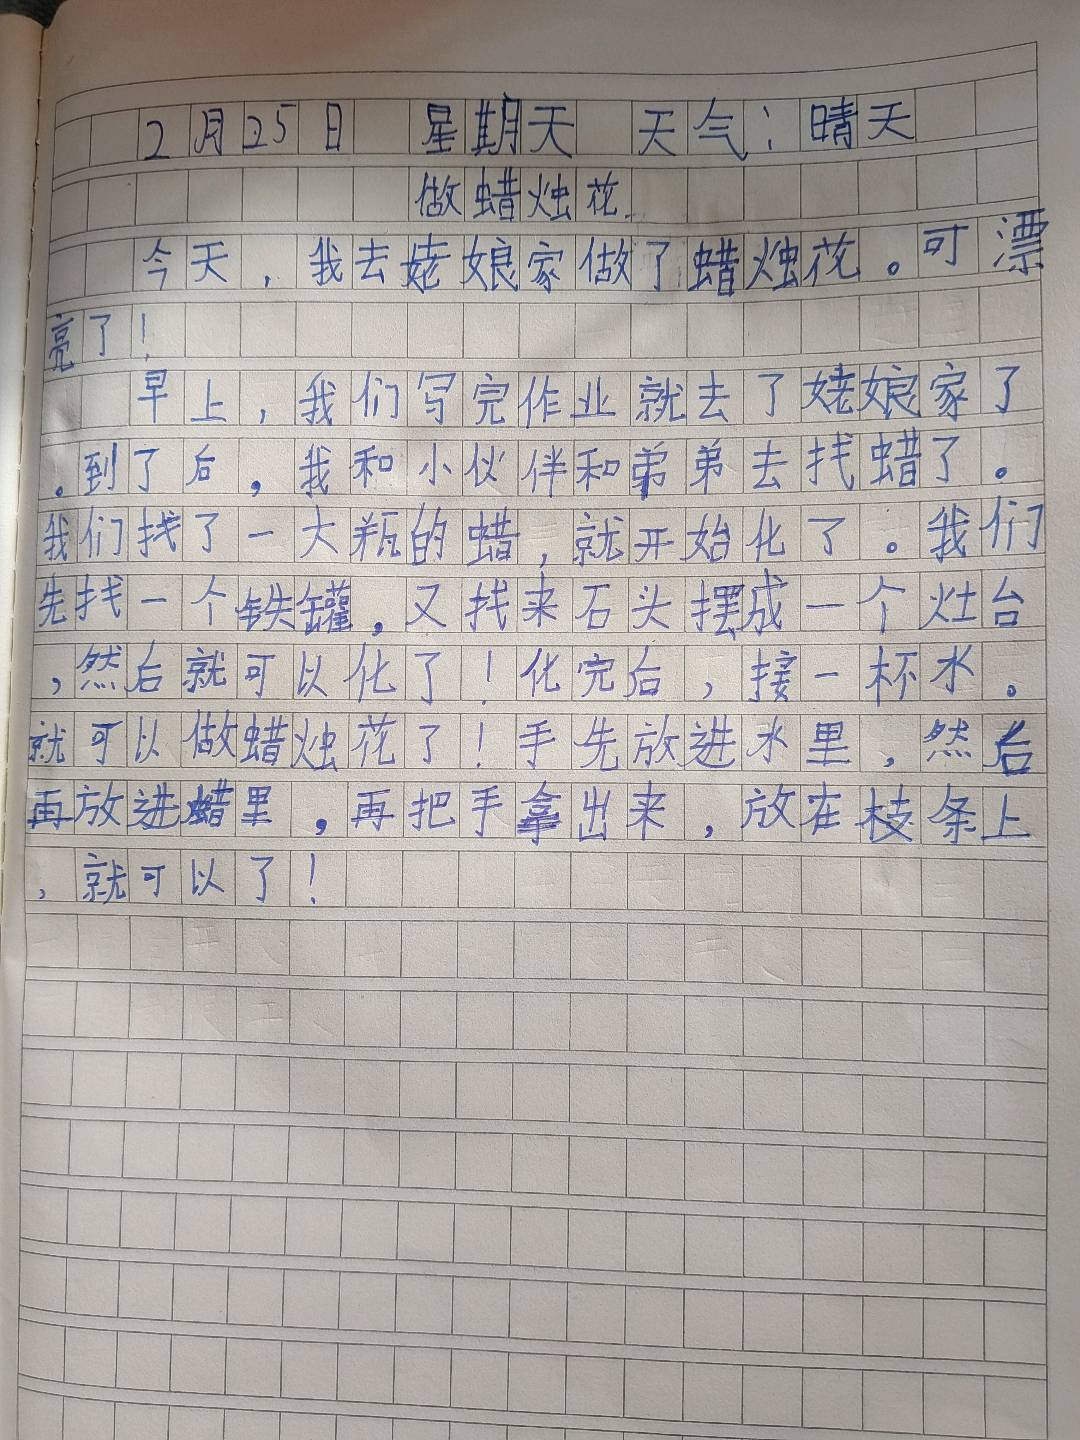 2月25日 星期天 天气:晴天
做蜡烛花
今天,我去姥娘家做了蜡烛花。可漂
亮了!
早上,我们写完作业就去了姥娘家了
。到了后,我和小伙伴和弟弟去找蜡了。
我们找了一大瓶的蜡,就开始化了。我们
先找一个铁罐,又找来石头摆成一个灶台
,然后就可以化了!化完后,接一杯水。
就可以做蜡烛花了!手先放进水里,然后
再放进蜡里,再把手拿出来,放在枝条上
,就可以了!